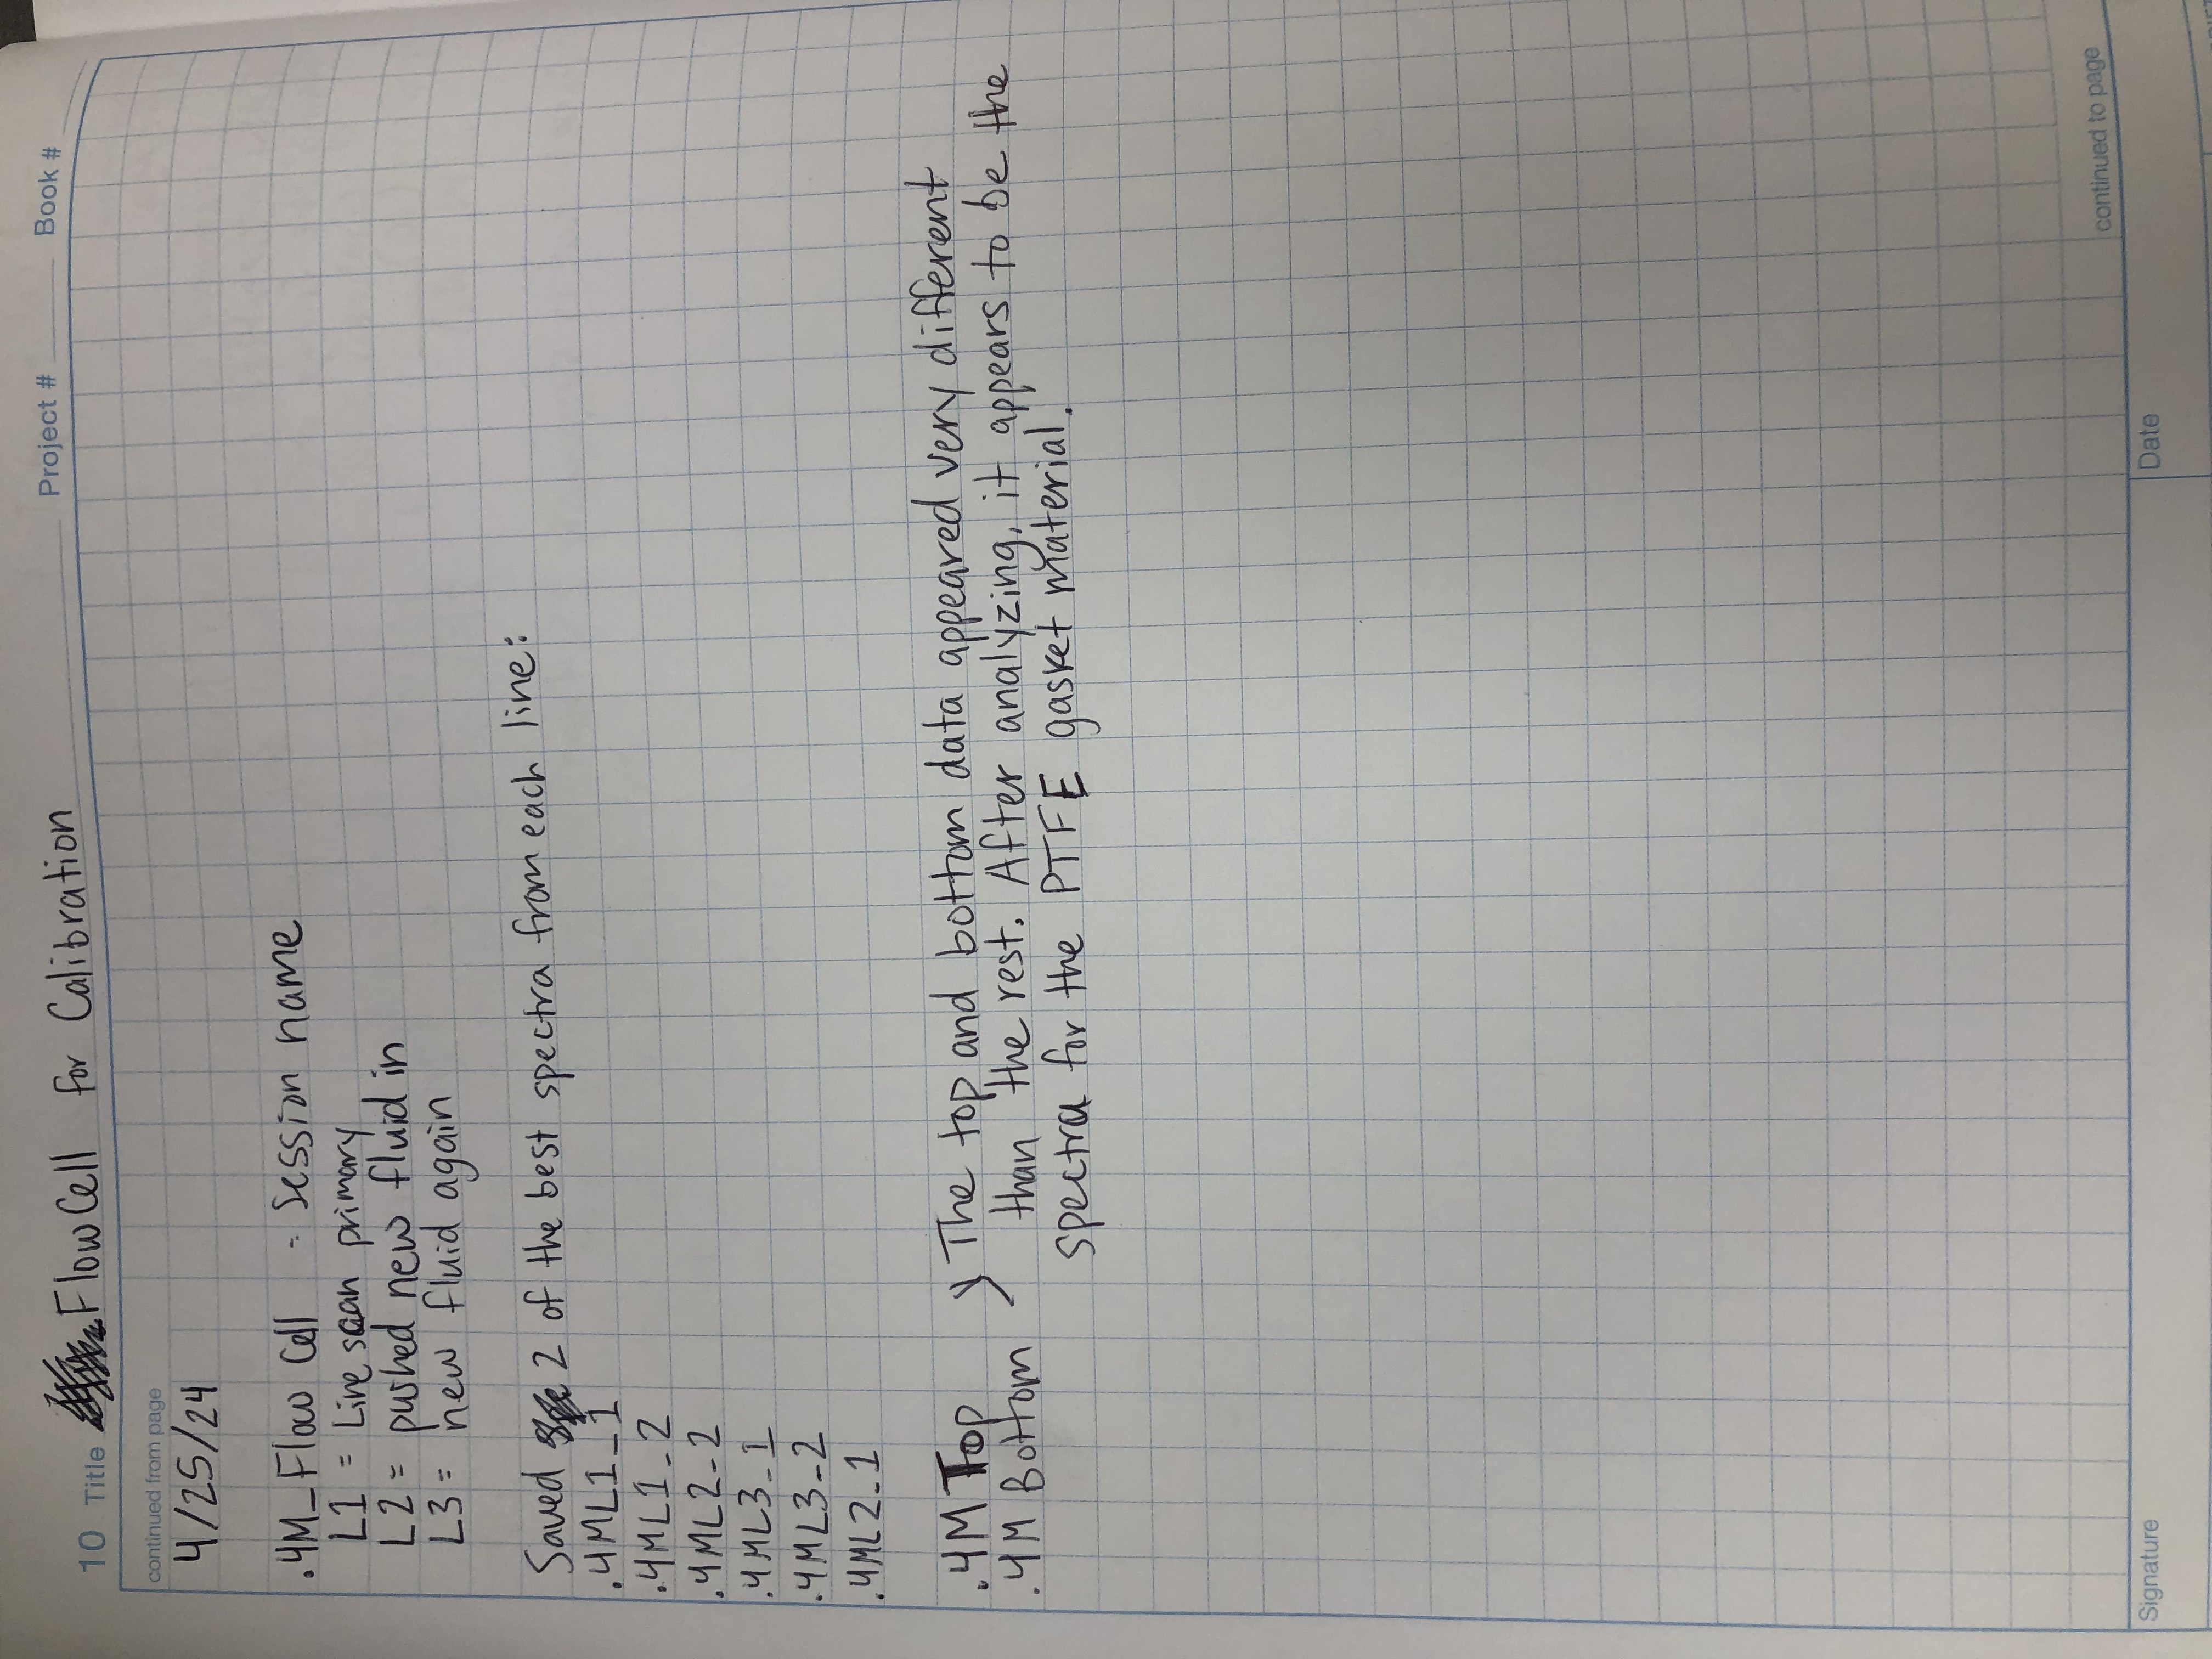 10 Title Flow Cell for Calibration Project # Book #
continued from page
4/25/24
.4M_Flow Cell = Session name
L1 = Line scan primary
L2 = pushed new fluid in
L3 = new fluid again
Saved 2 of the best spectra from each line:
.4ML1_1
.4ML1_2
.4ML2_2
.4ML3_1
.4ML3_2
.4ML2_1
.4M Top } The top and bottom data appeared very different
.4M Bottom than the rest. After analyzing, it appears to be the
spectra for the PTFE gasket material.
continued to page
Signature Date